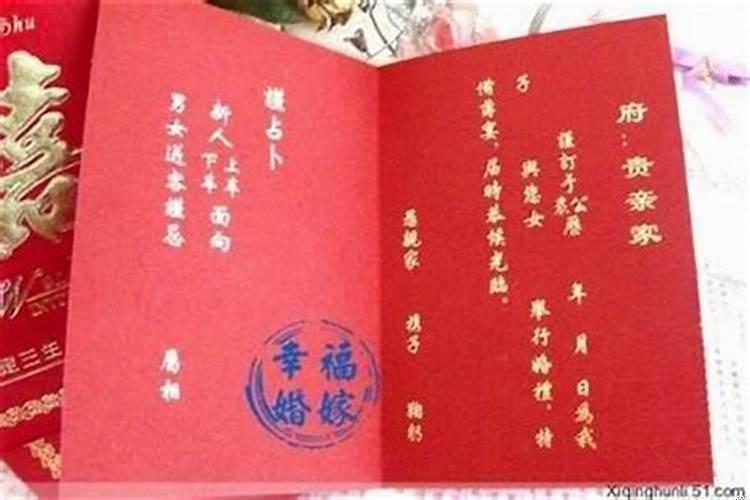 府：贵亲家
谨订于公历 年 月 日为我
农
子 與您女 举行婚禮，特
備薄宴，届時恭候光臨。
愚親家 携子 鞠躬
謹占卜
新人上車面向
下車
男女送客謹忌 屬相
幸福
婚嫁
Shu
囍
迎三生
Xiqinghunli.51.com